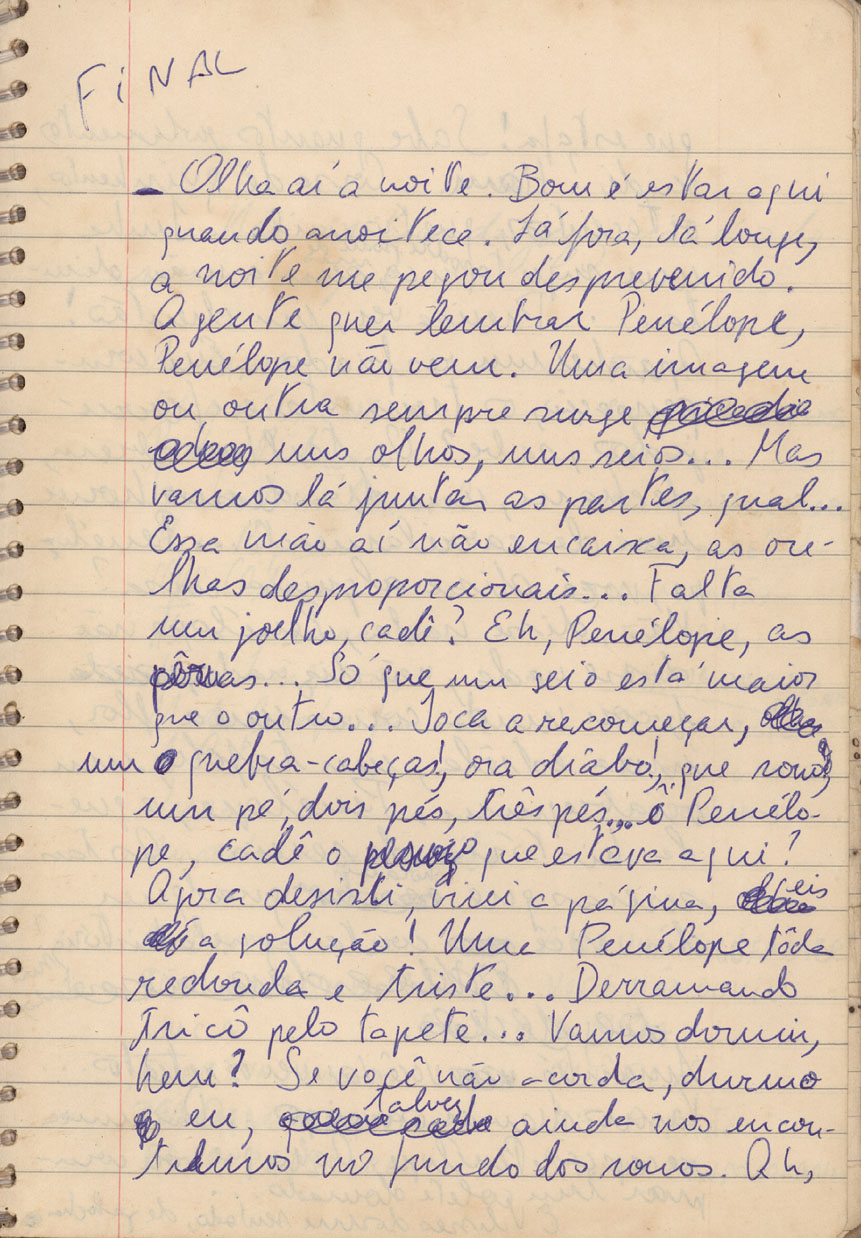 FiNAL
– Olha aí a noite. Bom é estar aqui
quando anoitece. Lá fora, lá longe,
a noite me pegou desprevenido.
A gente quer lembrar Penélope,
Penélope não vem. Uma imagem
ou outra sempre surge
uns olhos, uns seios... Mas
vamos lá juntar as partes, qual...
Essa mão aí não encaixa, as ore-
lhas desproporcionais... Falta
um joelho, cadê? Eh, Penélope, as
pernas... Só que um seio está maior
que o outro... Toca a recomeçar,
um quebra-cabeças!, ora diabo!, que sono,
um pé, dois pés, três pés... ô Penélo-
pe, cadê o que estava aqui?
Agora desisti, virei a página, eis
a solução! Uma Penélope tôda
redonda e triste... Derramando
tricô pelo tapete... Vamos dormir,
hem? Se você não acorda, durmo
eu, talvez ainda nos encon-
tremos no fundo dos sonos. Ah,